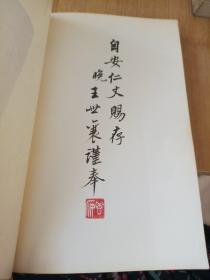 自安仁丈赐存
晚王世襄谨奉